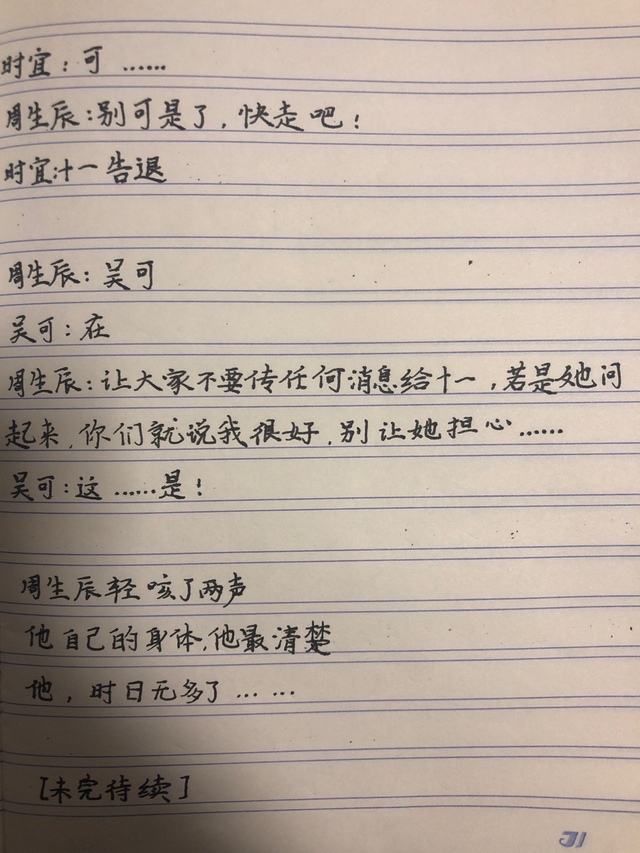 时宜：可……
周生辰：别可是了，快走吧！
时宜：十一告退
周生辰：吴可
吴可：在
周生辰：让大家不要传任何消息给十一，若是她问
起来，你们就说我很好，别让她担心……
吴可：这……是！
周生辰轻咳了两声
他自己的身体，他最清楚
他，时日无多了……
[未完待续]
31